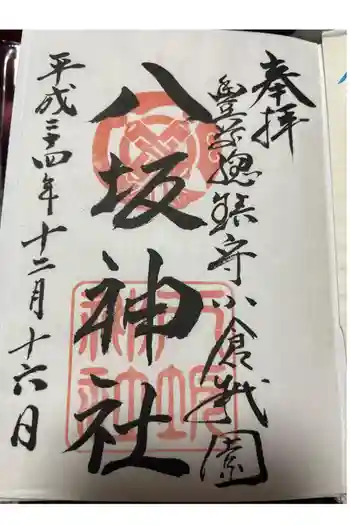 奉拝
豊前総鎮守小倉祇園
八坂神社
平成二十四年十二月十六日
八坂神社